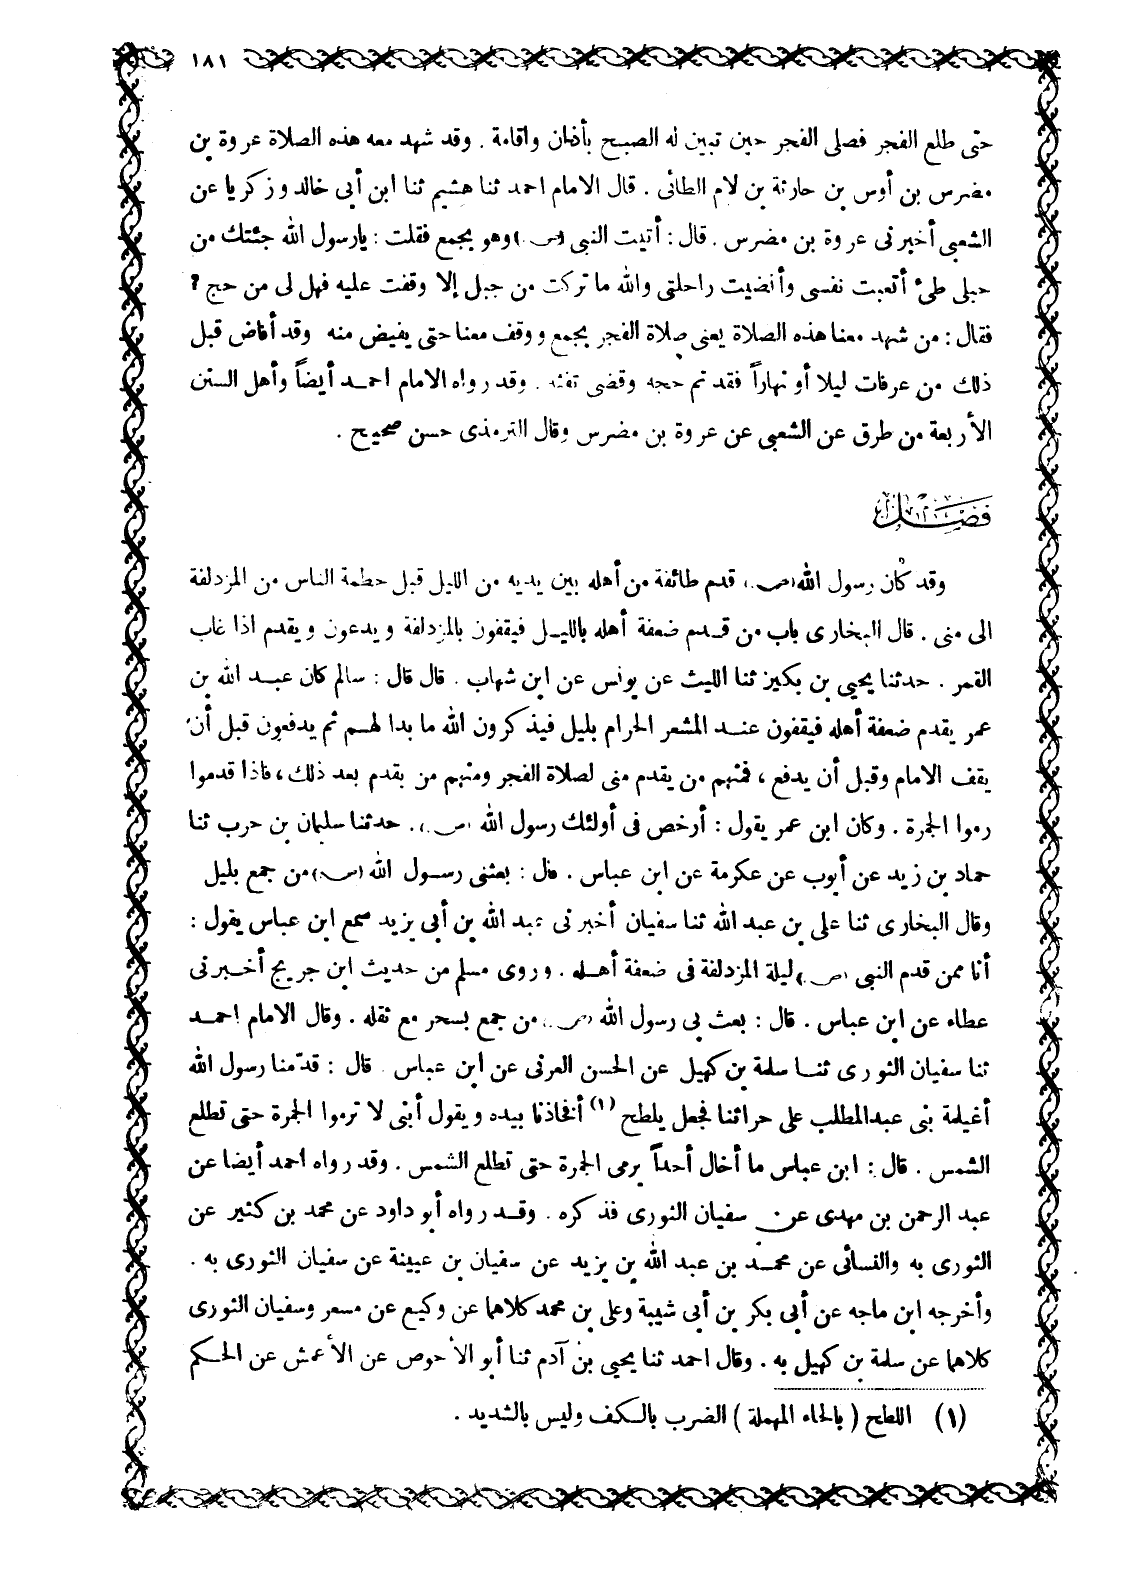 ١٨١
حتى طلع الفجر فصلى الفجر حين تبين له الصبح بأذان واقامة . وقد شهد معه هذه الصلاة عروة بن
مضرس بن أوس بن حارثة بن لام الطائى . قال الامام احمد ثنا هشيم ثنا ابن أبى خالد وزكريا عن
الشعبى أخبرنى عروة بن مضرس . قال : أتيت النبى (ص) وهو بجمع فقلت : يارسول الله جئتك من
جبلى طىء أتعبت نفسى وأنضيت راحلتى والله ما تركت من جبل إلا وقفت عليه فهل لى من حج ؟
فقال : من شهد معنا هذه الصلاة يعنى صلاة الفجر بجمع ووقف معنا حتى يفيض منه وقد أفاض قبل
ذلك من عرفات ليلا أو نهاراً فقد تم حجه وقضى تفثه . وقد رواه الامام احمد أيضاً وأهل السنن
الأربعة من طرق عن الشعبى عن عروة بن مضرس وقال الترمذى حسن صحيح .
فصل
وقد كان رسول الله (ص) قدم طائفة من أهله بين يديه من الليل قبل حطمة الناس من المزدلفة
الى منى . قال البخارى باب من قدم ضعفة أهله بالليل فيقفون بالمزدلفة ويدعون ويقدم اذا غاب
القمر . حدثنا يحيى بن بكيز ثنا الليث عن يونس عن ابن شهاب . قال قال : سالم كان عبد الله بن
عمر يقدم ضعفة أهله فيقفون عند المشعر الحرام بليل فيذكرون الله ما بدا لهم ثم يدفعون قبل أن
يقف الامام وقبل أن يدفع ، فمنهم من يقدم منى لصلاة الفجر ومنهم من يقدم بعد ذلك ، فاذا قدموا
رموا الجمرة . وكان ابن عمر يقول : أرخص فى أولئك رسول الله (ص) . حدثنا سليمان بن حرب ثنا
حماد بن زيد عن أيوب عن عكرمة عن ابن عباس . قال : بعثنى رسول الله (ص) من جمع بليل
وقال البخارى ثنا على بن عبد الله ثنا سفيان أخبرنى عبد الله بن أبى يزيد سمع ابن عباس يقول :
أنا ممن قدم النبى (ص) ليلة المزدلفة فى ضعفة أهله . وروى مسلم من حديث ابن جريج أخبرنى
عطاء عن ابن عباس . قال : بعث بى رسول الله (ص) من جمع بسحر مع ثقله . وقال الامام احمد
ثنا سفيان الثورى ثنا سلمة بن كهيل عن الحسن العرنى عن ابن عباس قال : قدّمنا رسول الله
أغيلمة بنى عبدالمطلب على حراثنا فجعل يلطح (١) أفخاذنا بيده ويقول أبنى لا ترموا الجمرة حتى تطلع
الشمس . قال : ابن عباس ما أخال أحداً يرمى الجمرة حتى تطلع الشمس . وقد رواه احمد أيضا عن
عبد الرحمن بن مهدى عن سفيان الثورى فذكره . وقد رواه أبو داود عن محمد بن كثير عن
الثورى به والنسائى عن محمد بن عبد الله بن يزيد عن سفيان بن عيينة عن سفيان الثورى به .
وأخرجه ابن ماجه عن أبى بكر بن أبى شيبة وعلى بن محمد كلاهما عن وكيع عن مسعر وسفيان الثورى
كلاهما عن سلمة بن كهيل به . وقال احمد ثنا يحيى بن آدم ثنا أبو الأحوص عن الأعمش عن الحكم
(١) اللطح ( بالحاء المهملة ) الضرب بالكف وليس بالشديد .